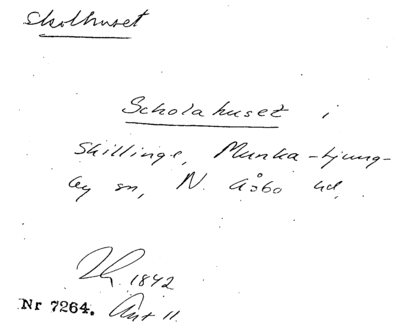 Skolhuset
Scholahuset i
Skillinge, Munka-Ljung-
by sn, N. Åsbo hd.
1842
Nr 7264. Ant 11.